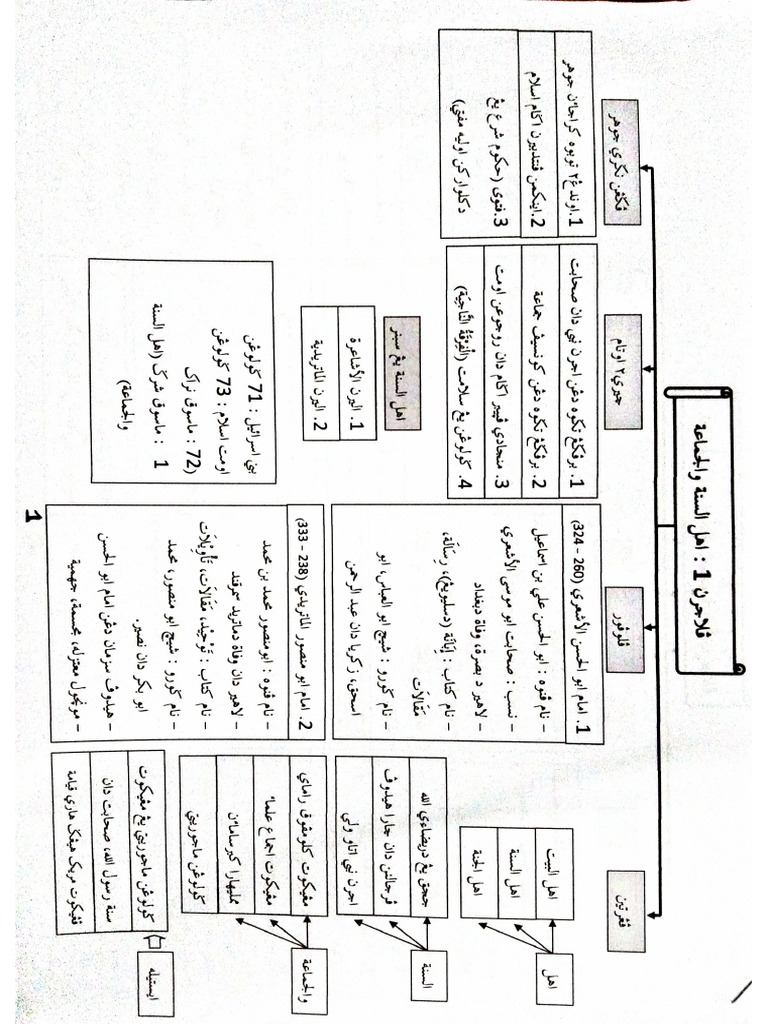 ڤلاجرن 1 : اهل السنة والجماعة
ڤڠرتين
اهل
اهل البيت
اهل السنة
اهل الجنة
السنة
ججق يڠ درضاءي الله
ڤرجالنن دان چارا هيدوڤ
اجرن نبي اتاو ولي
والجماعة
مڠيكوت كلومڤوق راماي
مڠيكوت اجماع علماء
ممليهارا كبرساماءن
كولوڠن ماجوريتي
ايستيله
كولوڠن ماجوريتي يڠ مڠيكوت
سنة رسول الله، صحابت دان
ڤڠيكوت مريك هيڠݢ هاري قيامة
ڤلوڤور
1. امام ابو الحسن الأشعري (260 – 324)
– نام ڤنوه : ابو الحسن علي بن اسماعيل
– نسب : صحابت ابو موسى الأشعري
– لاهير د بصره، وفاة دبغداد
– نام كتاب : إِبَانَة (دسليويڠ)، رِسَالَة،
مَقَالَات
– نام ݢورو : شيخ ابو العباس، ابو
اسحق، زكريا دان عبد الرحمن
2. امام ابو منصور الماتريدي (238 – 333)
– نام ڤنوه : ابو منصور محمد بن محمد
– لاهير دان وفاة دماتريد سمرقند
– نام كتاب : تَوْحِيْد، مَقَالَات، تَأْوِيْلَات
– نام ݢورو : شيخ ابو منصور، محمد
ابو بكر دان نصير.
– هيدوڤ سزمان دڠن امام ابو الحسن
– مونچول معتزله، مجسمة، جهمية
چيري٢ اوتام
1. برڤݢڠ تݢوه دڠن اجرن نبي دان صحابت
2. برڤݢڠ تݢوه دڠن كونسيڤ جماعة
3. منجادي ڤڽبر اݢام دان روجوعن اومت
4. كولوڠن يڠ سلامت (الْفِرْقَةُ النَّاجِيَة)
اهل السنة يڠ سبنر
1. اليرن الأشاعرة
2. اليرن الماتريدية
بني اسرائيل : 71 كولوڠن
اومت اسلام : 73 كولوڠن
(72 : ماسوق نراك
1 : ماسوق شرݢ (اهل السنة
والجماعة)
ڤݢڠن نݢري جوهر
1.اوندڠ٢ توبوه كراجاءن جوهر
2.اينكمن ڤنتدبيرن اݢام اسلام
3.فتوى (حكوم شرع يڠ
دكلواركن اوليه مفتي)
1